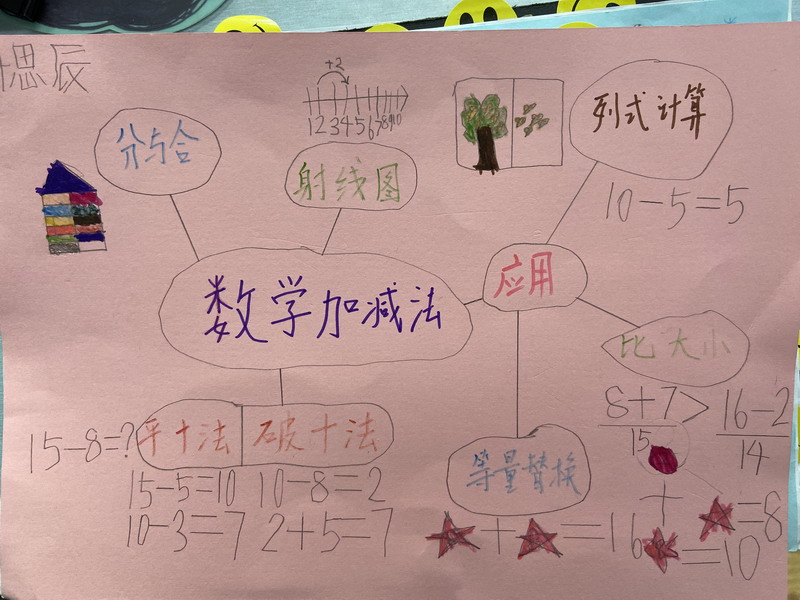 思辰
+2
1 2 3 4 5 6 7 8 9 10
分与合
射线图
列式计算
10-5=5
数学加减法
应用
比大小
8+7>16-2
15
14
15-8=?
平十法
破十法
15-5=10
10-8=2
10-3=7
2+5=7
等量替换
★+★=16
★=8
+★=10